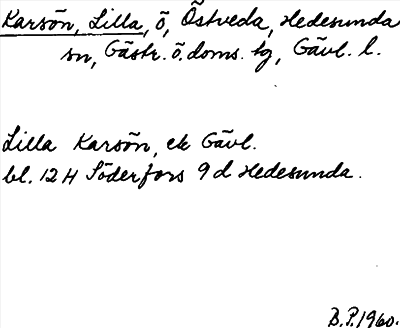 Karsön, Lilla, ö, Östveda, Hedesunda
sn, Gästr. ö. doms. tg, Gävl. l.
Lilla Karsön, ek Gävl.
bl. 12 H Söderfors 9 d Hedesunda.
B.P. 1960.